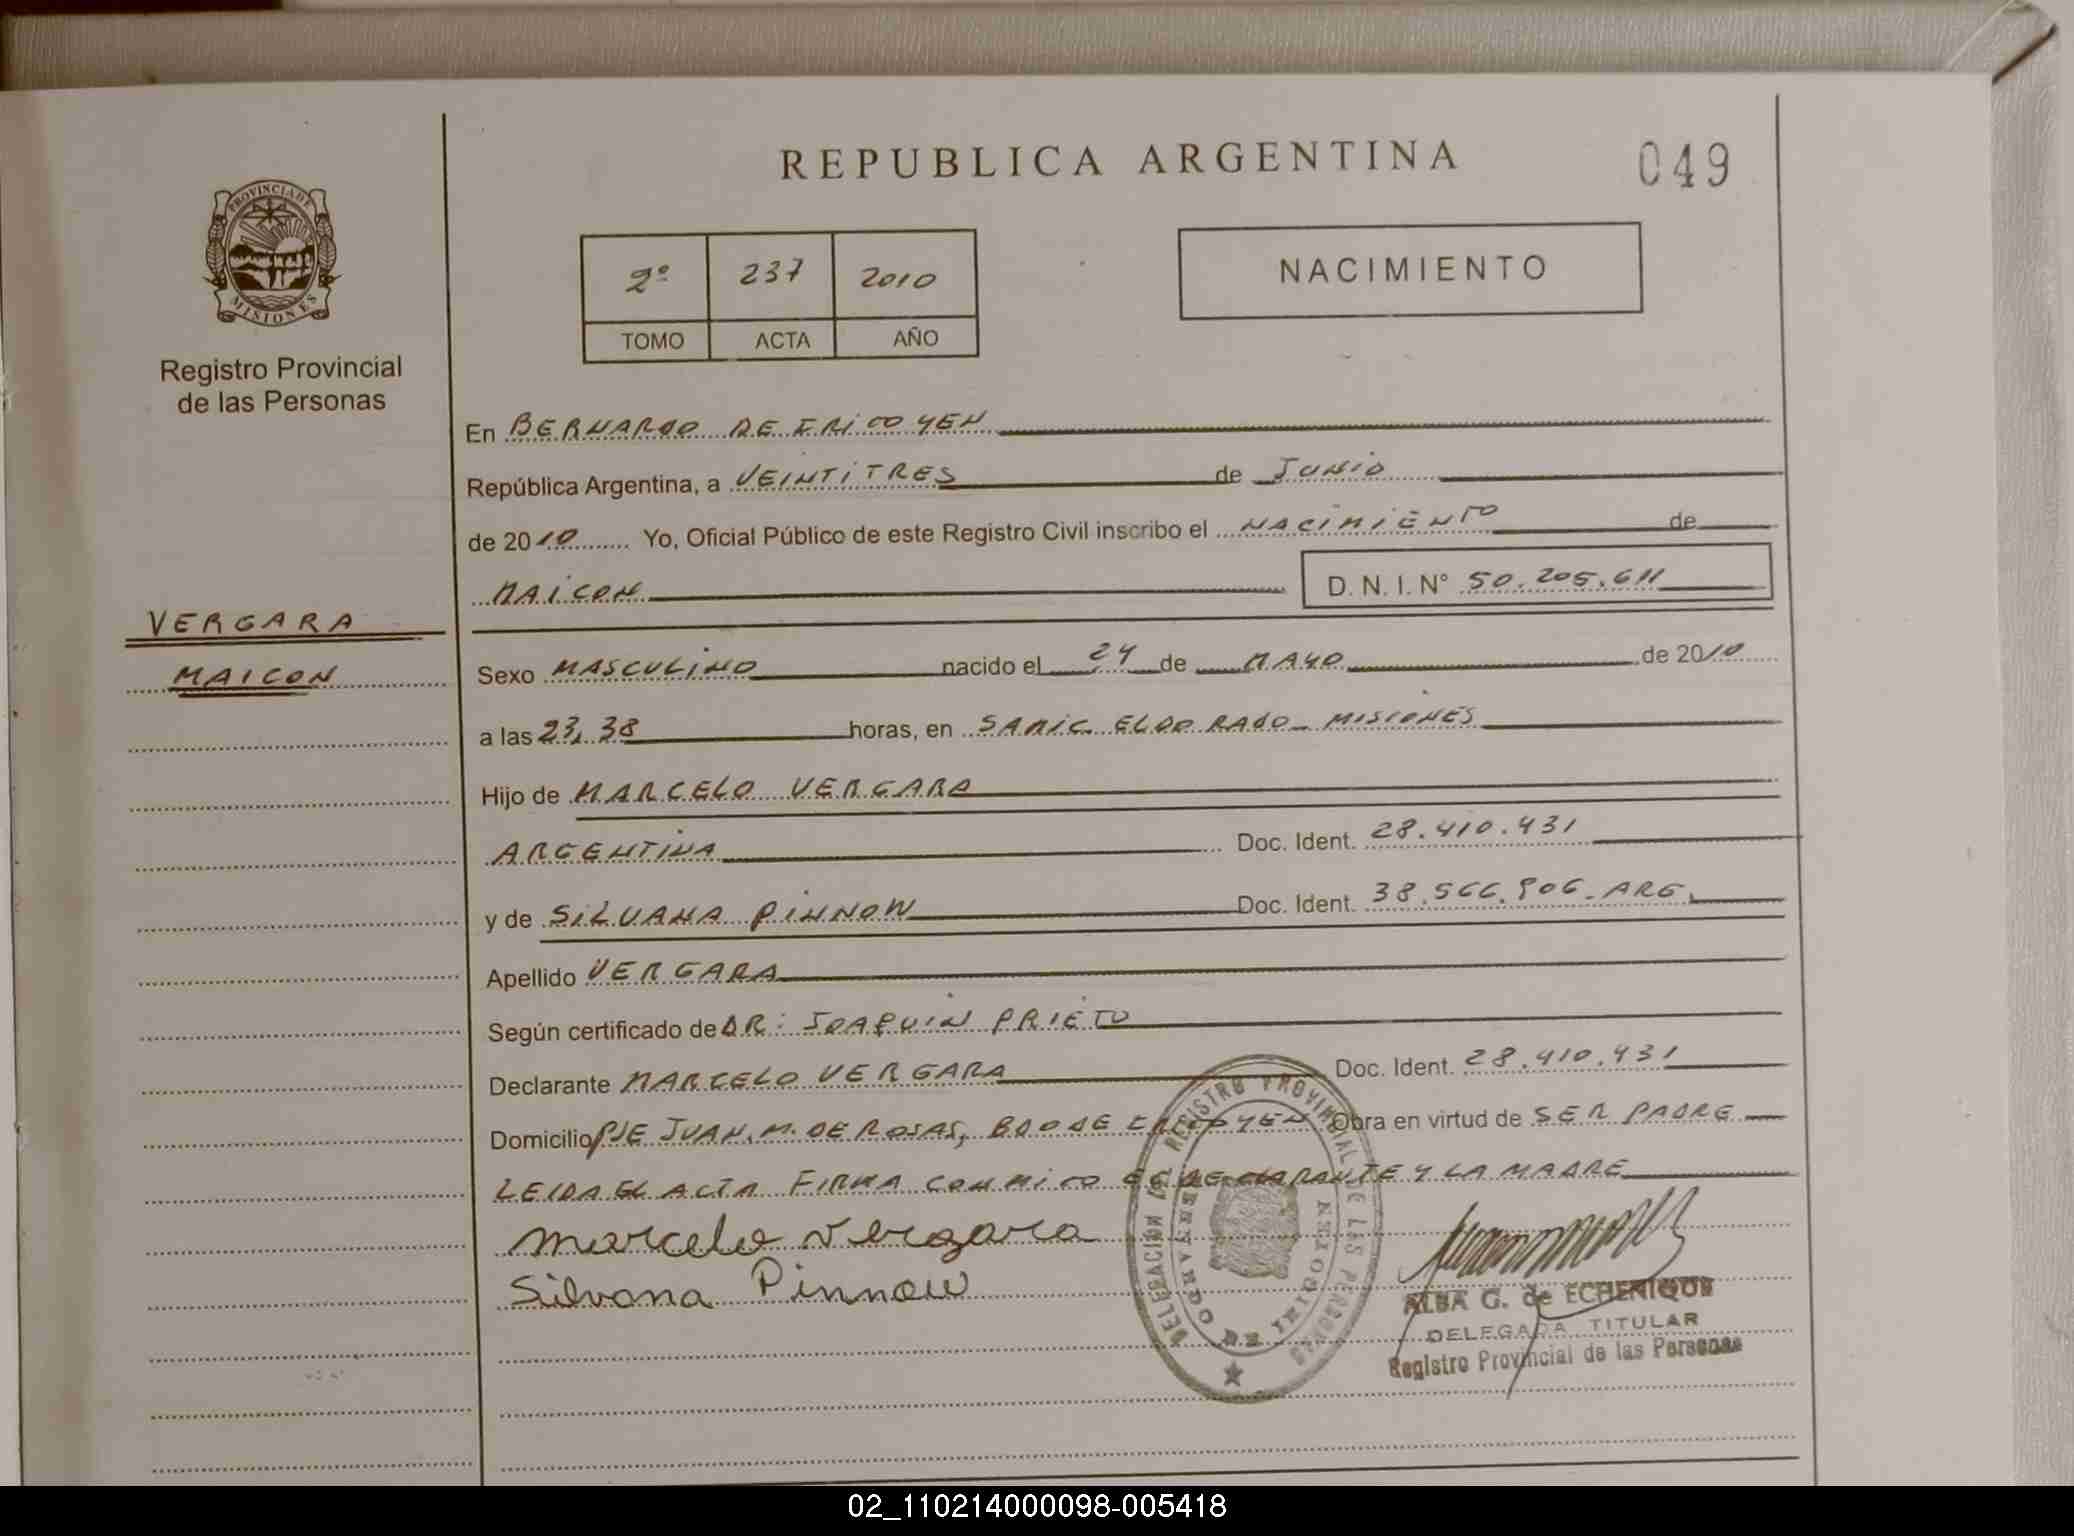 REPUBLICA ARGENTINA
049
PROVINCIA DE
MISIONES
Registro Provincial
de las Personas
2º 237 2010
TOMO ACTA AÑO
NACIMIENTO
En BERNARDO DE IRIGOYEN
República Argentina, a VEINTITRES de JUNIO
de 2010 Yo, Oficial Público de este Registro Civil inscribo el NACIMIENTO de
MAICON D. N. I. N° 50.205.611
VERGARA
MAICON
Sexo MASCULINO nacido el 24 de MAYO de 2010
a las 23,38 horas, en SAMIC. ELDORADO - MISIONES
Hijo de MARCELO VERGARA
ARGENTINA Doc. Ident. 28.410.431
y de SILVANA PINNOW Doc. Ident. 38.566.906 - ARG.
Apellido VERGARA
Según certificado de DR: JOAQUIN PRIETO
Declarante MARCELO VERGARA Doc. Ident. 28.410.431
Domicilio PJE JUAN. M. DE ROSAS, BDO DE IRIGOYEN Obra en virtud de SER PADRE
LEIDA EL ACTA FIRMA CONMIGO EL DECLARANTE Y LA MADRE
marcelo vergara
Silvana Pinnow
DELEGACION DEL REGISTRO PROVINCIAL DE LAS PERSONAS
BERNARDO DE IRIGOYEN
ALBA G. de ECHENIQUE
DELEGADA TITULAR
Registro Provincial de las Personas
02_110214000098-005418